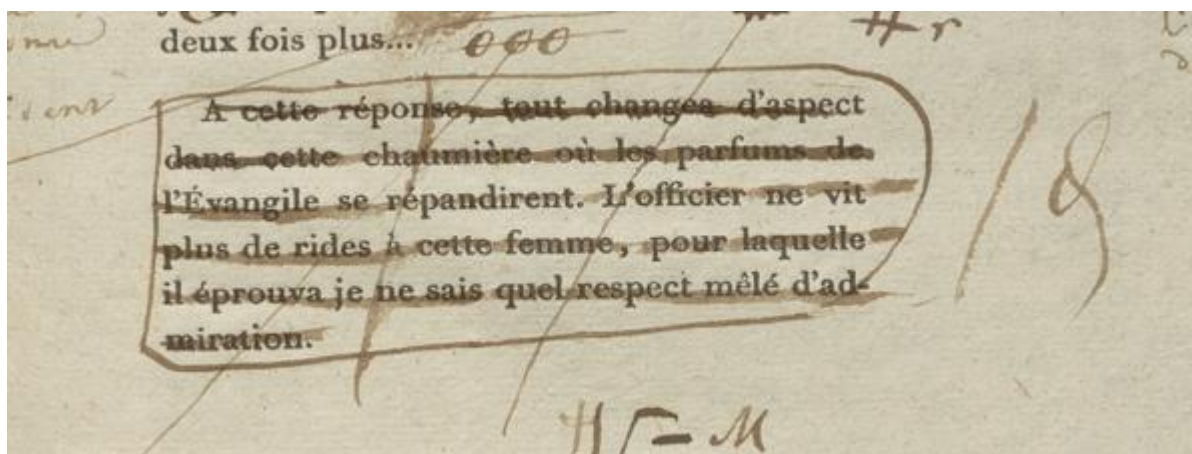 deux fois plus...
A cette réponse, tout changea d'aspect
dans cette chaumière où les parfums de
l'Évangile se répandirent. L'officier ne vit
plus de rides à cette femme, pour laquelle
il éprouva je ne sais quel respect mêlé d'ad-
miration.